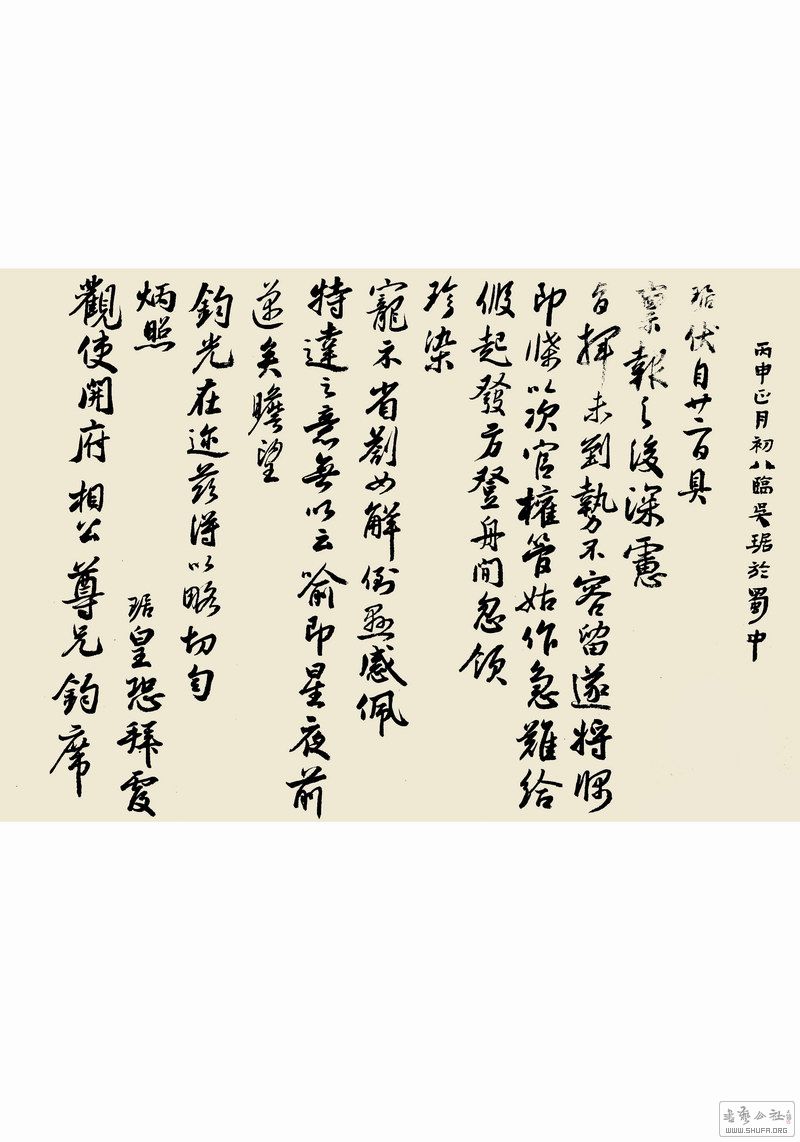 丙申正月初八临吴琚於蜀中
琚伏自廿二百具
稟報之後深慮
旨揮未到勢不容留遂將
即牒以次官權管姑作急難給
假起發方登舟間忽領
珍染
寵示省劄如解倒懸感佩
特達之意無以云喻即星夜前
邁矣瞻望
鈞光在迩茲得以略切匄
炳照
琚皇恐拜覆
觀使開府相公尊兄鈞席
書藝公社
WWW.SHUFA.ORG